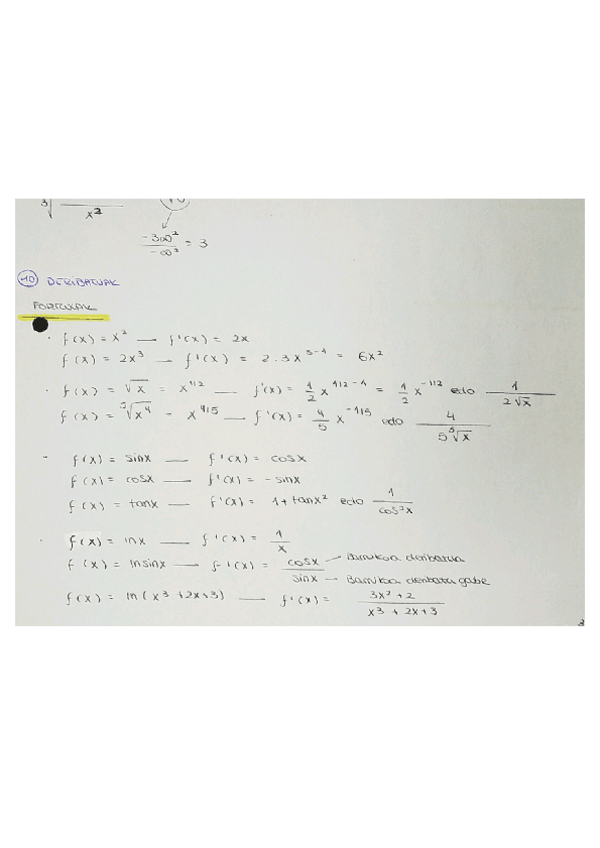 3√ x²
-3∞² / -∞² = 3
10 DERIBATUAK
FORMULAK
· f(x) = x² — f'(x) = 2x
f(x) = 2x³ — f'(x) = 2.3x³⁻¹ = 6x²
· f(x) = √x = x^1/2 — f'(x) = 1/2 x^1/2-1 = 1/2 x^-1/2 edo 1/2√x
f(x) = ⁵√x⁴ = x^4/5 — f'(x) = 4/5 x^-1/5 edo 4/5⁵√x
- f(x) = sinx — f'(x) = cosx
f(x) = cosx — f'(x) = -sinx
f(x) = tanx — f'(x) = 1+tanx² edo 1/cos²x
· f(x) = lnx — f'(x) = 1/x
f(x) = lnsinx — f'(x) = cosx/sinx — Barrukoa deribatua
— Barrukoa deribatu gabe
f(x) = ln(x³+2x+3) — f'(x) = 3x²+2 / x³+2x+3